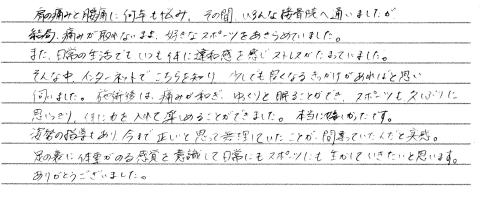 肩の痛みと腰痛に何年も悩み、その間、いろんな接骨院へ通いましたが
結局、痛みが取れないまま、好きなスポーツをあきらめていました。
また、日常の生活でもいつも体に違和感を感じストレスがたまっていました。
そんな中、インターネットでこちらを知り、少しでも良くなるきっかけがあればと思い
伺いました。施術後は、痛みが和らぎ、ゆっくりと眠ることができ、スポーツも久しぶりに
思いっきり、体に力を入れて楽しめることができました。本当に嬉しかったです。
姿勢の指導もあり、今まで正しいと思って無理していたことが、間違っていたんだと実感。
足の裏に体重がのる感覚を意識して日常にもスポーツにも生かしていきたいと思います。
ありがとうございました。